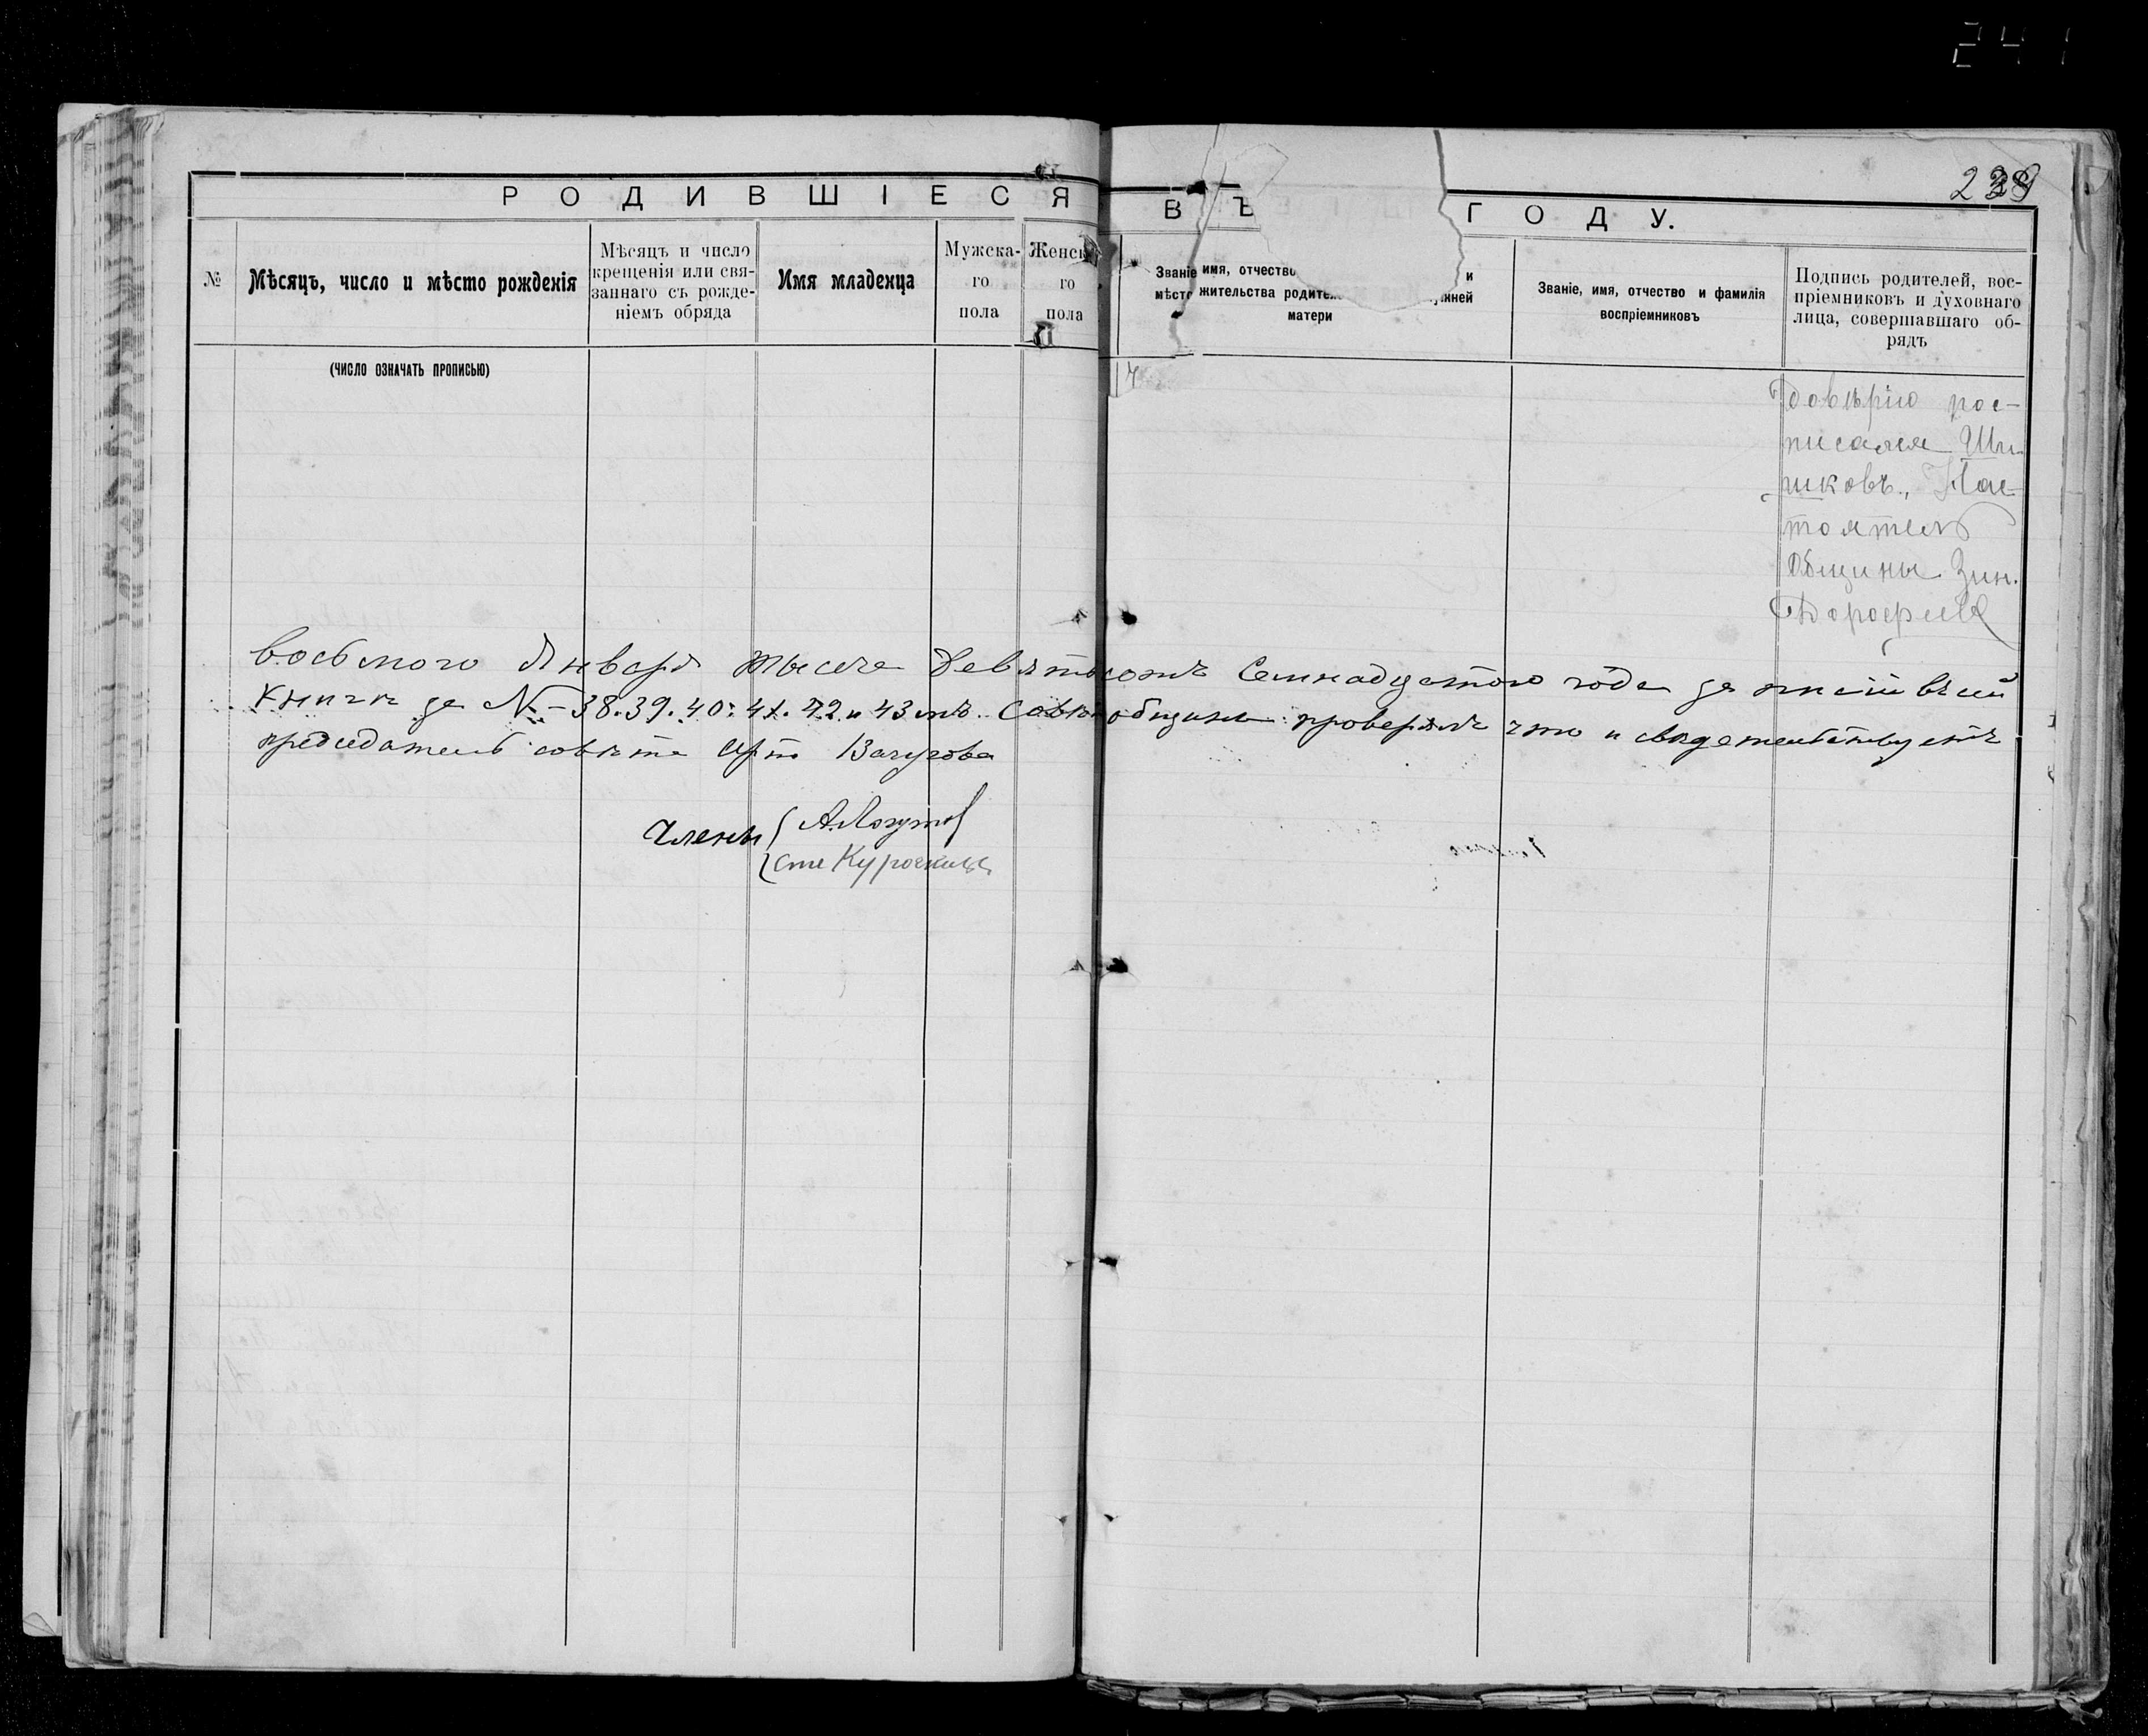 241
239
РОДИВШІЕСЯ ВЪ ГОДУ.
№
Мѣсяцъ, число и мѣсто рожденія
Мѣсяцъ и число
крещенія или свя-
заннаго съ рожде-
ніемъ обряда
Имя младенца
Мужска-
го
пола
Женск
го
пола
Званіе имя, отчество и
мѣсто жительства родител
матери
Званіе, имя, отчество и фамилія
воспріемниковъ
Подпись родителей, вос-
пріемниковъ и духовнаго
лица, совершавшаго об-
рядъ
(ЧИСЛО ОЗНАЧАТЬ ПРОПИСЬЮ)
довѣрію рос-
писался
Нас-
тоятель
Общины Зин.
Дорофеев
восьмого Января тысеча Девятьсотъ Семнадцатого года
книги за № 38.39.40.41.42 и 43 Совѣт общины проверялъ что и
председатель совѣта
Члены А.Логутов
Сте Курочкинъ